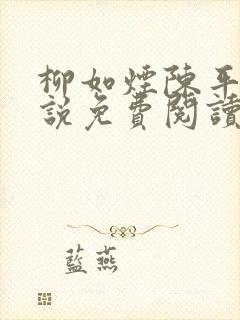 柳如煙陳平
說免費閱讀
藍燕